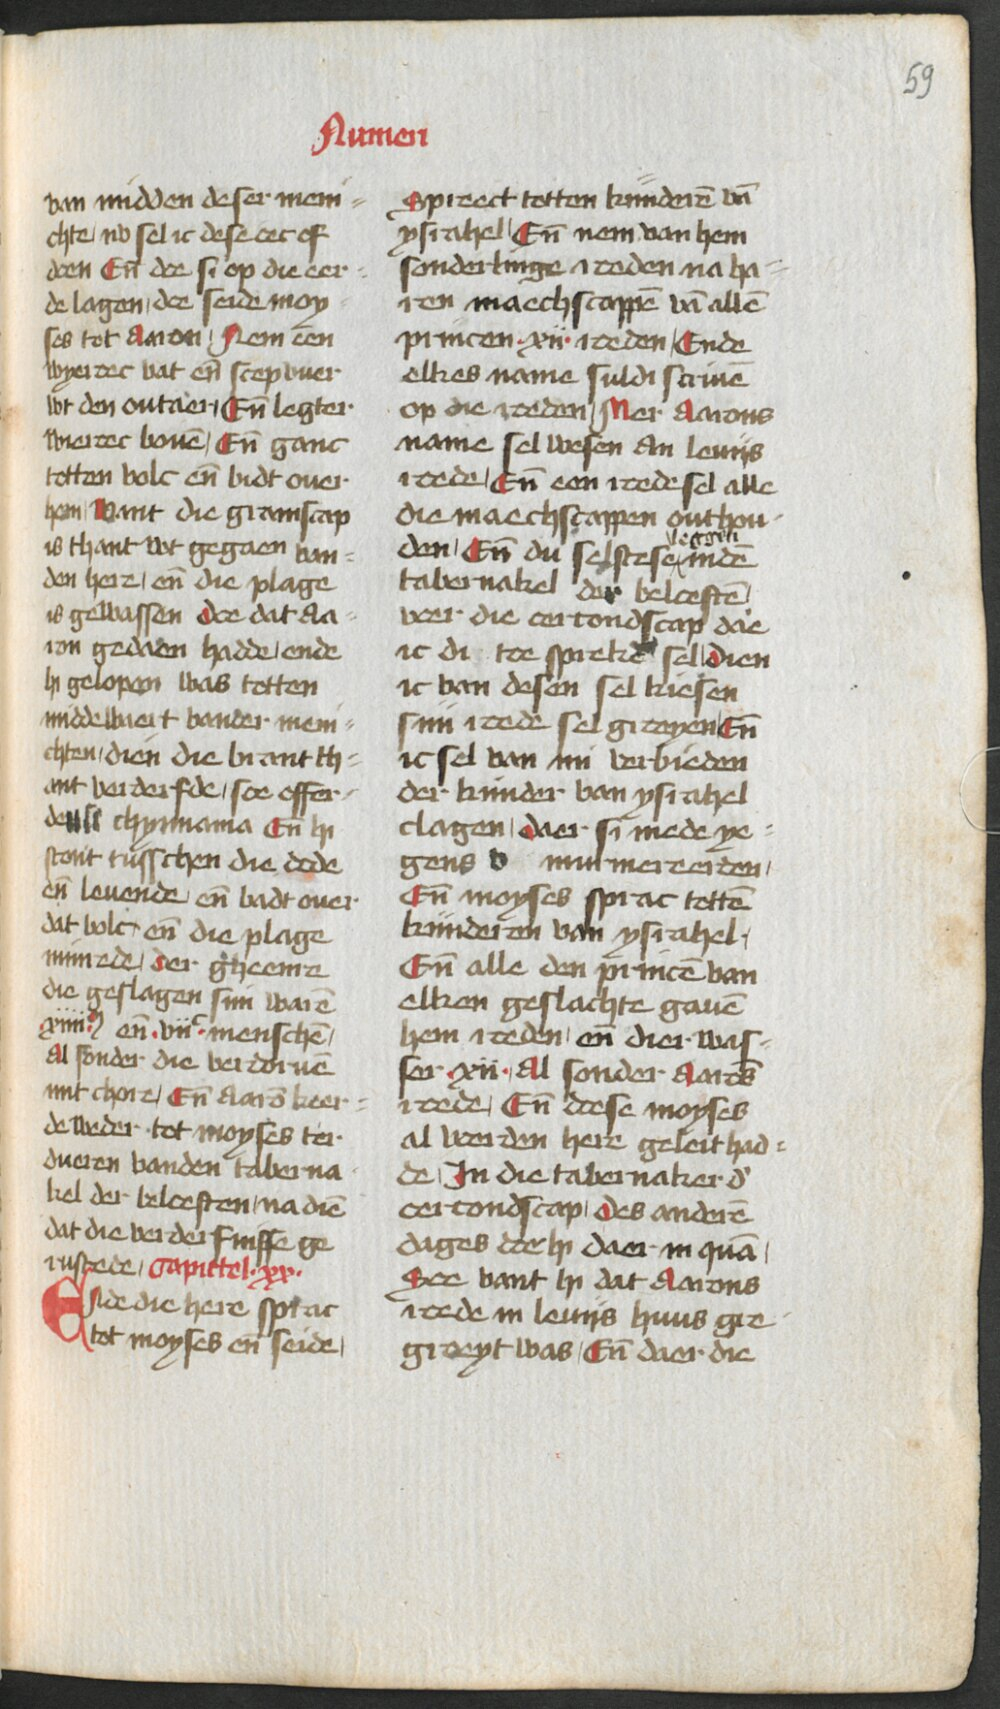 59
Numeri
van midden deser meni=
chte / nv sel ic dese oec of
doen Eñ doe si op die eer=
de lagen / doe seide moy
ses tot Aaron / Nem een
wyeroec vat eñ scep vuer
wt den outaer / Eñ legter
wieroec bouē / Eñ ganc
totten volc eñ bidt ouer
hem / Want die gramscap
is thant wt gegaen van=
den here / eñ die plage
is gewassen Doe dat Aa=
ron gedaen hadde / ende
hi gelopen was totten
middewaert vander meni=
chten / dien die brant th=
ant verderfde / soe offer=
de hi thymiama Eñ hi
stont tusschen die dode
eñ leuende / eñ badt ouer
dat volc eñ die plage
minrede / Der gheenre
die geslagen sijn warē
xiiii.M eñ .vii.c menschē /
Al sonder die verdoruē
mit chore / Eñ Aarō keer=
de weder tot moyses ter
dueren vanden taberna
kel der beloeften / na diē
dat die verderfnisse ge
rustede / Capittel .xx.
Ende die here sprac
tot moyses eñ seide /
Spreect totten kinderē vā
ysrahel / Eñ nem van hem
sonderlinge roeden na ha=
ren maechscappē vā allē
princen .xii. roeden / Ende
elkes name suldi scriuē
op die roeden / Mer Aarons
name sel wesen an leuijs
roede / Eñ een roede sel alle
die maechscappen onthou
den / Eñ du selstese indē
leggen
tabernakel der beloeftē /
voer die oercondscap dae
ic di toe sprekē sel / Dien
ic van desen sel kiesen
sijn roede sel groeyen Eñ
ic sel van mi verbieden
der kinder van ysrahel
clagen / daer si mede ye=
gens v murmereerden /
Eñ moyses sprac tottē
kinderen van ysrahel /
Eñ alle den princē van
elken geslachte gauē
hem roeden / eñ dier was=
ser .xii. Al sonder Aarōs
roede / Eñ doese moyses
al voer den here geleit had=
de / In die tabernaker d'
oercondscap / Des anderē
dages doe hi daer in quā /
Soe vant hi dat Aarons
roede in leuijs huus gre
groeyt was / Eñ daer die